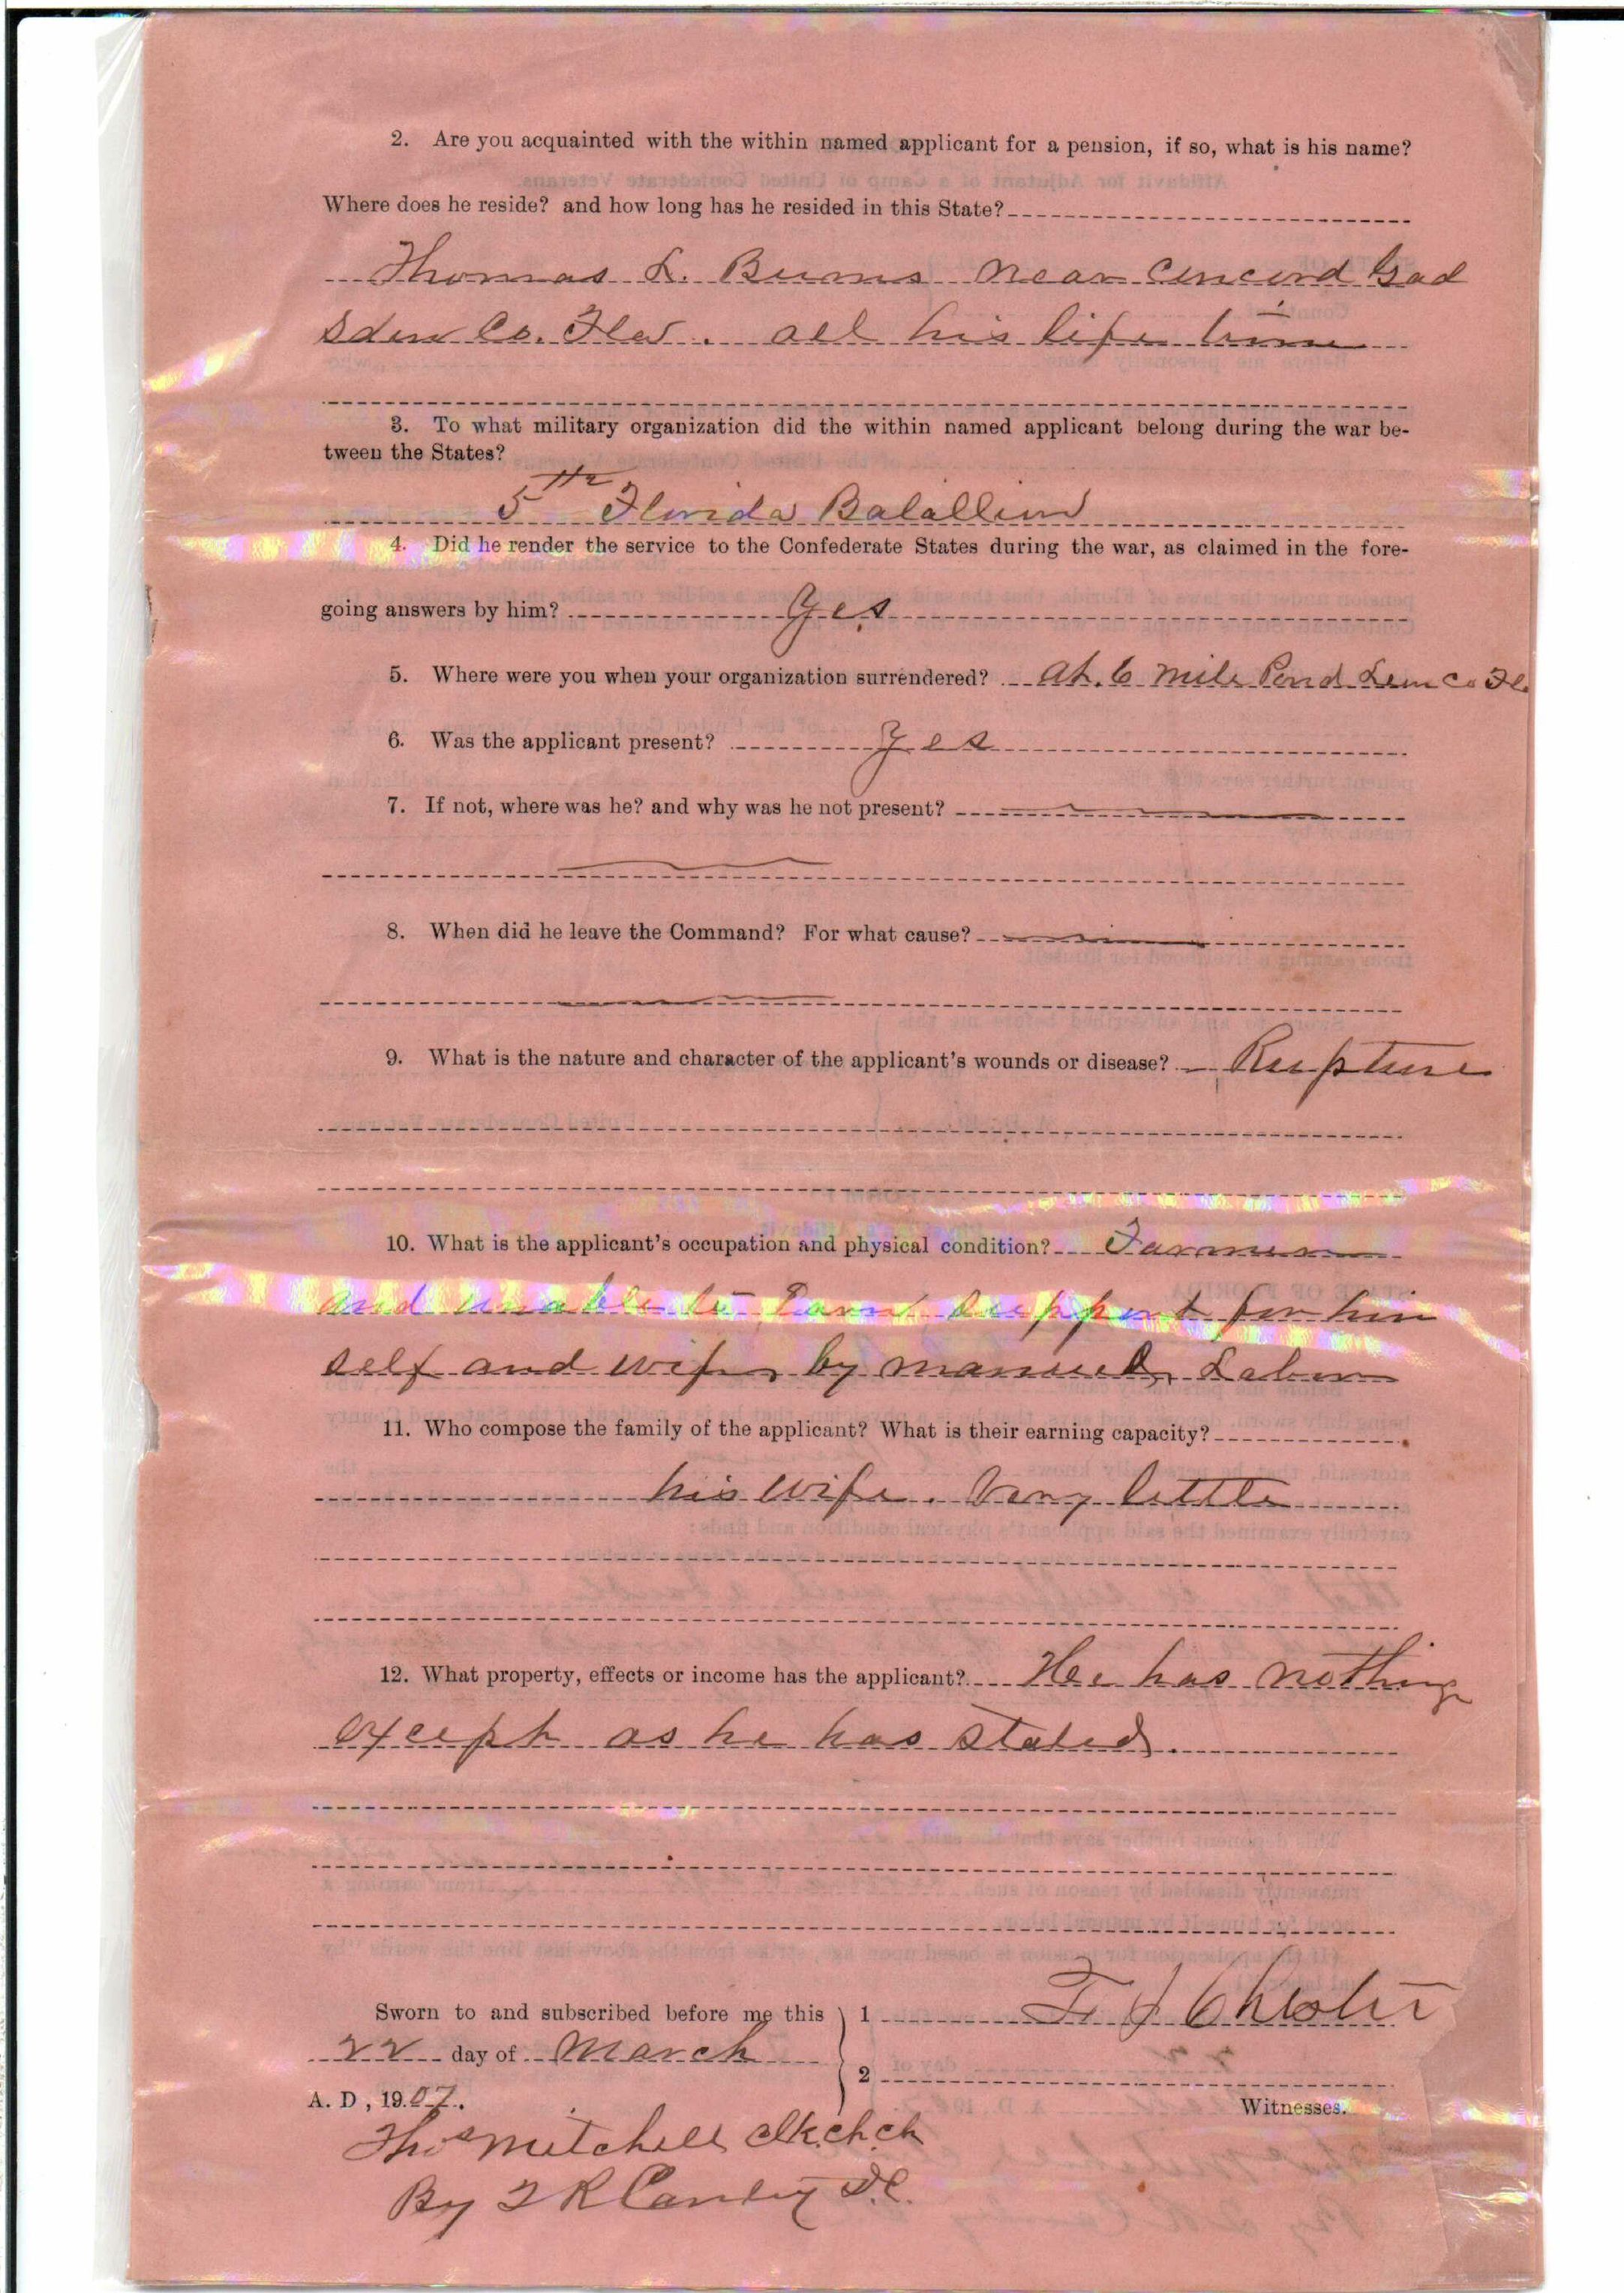 2. Are you acquainted with the within named applicant for a pension, if so, what is his name?
Where does he reside? and how long has he resided in this State?
Thomas L. Burns near Concord Gad
sden Co. Fla. all his life time
3. To what military organization did the within named applicant belong during the war be-
tween the States?
5th Florida Balallion
4. Did he render the service to the Confederate States during the war, as claimed in the fore-
going answers by him? Yes
5. Where were you when your organization surrendered? At 6 mile Pond Leon Co Fla
6. Was the applicant present? Yes
7. If not, where was he? and why was he not present?
8. When did he leave the Command? For what cause?
9. What is the nature and character of the applicant's wounds or disease? Rupture
10. What is the applicant's occupation and physical condition? Farmer
and unable to Earn support for him
self and wife by manuel Labor
11. Who compose the family of the applicant? What is their earning capacity?
his wife. Very little
12. What property, effects or income has the applicant? He has nothing
except as he has stated.
Sworn to and subscribed before me this
22 day of March
A. D, 1907.
1 T J Chester
2
Witnesses.
Thos Mitchell Clk.
By